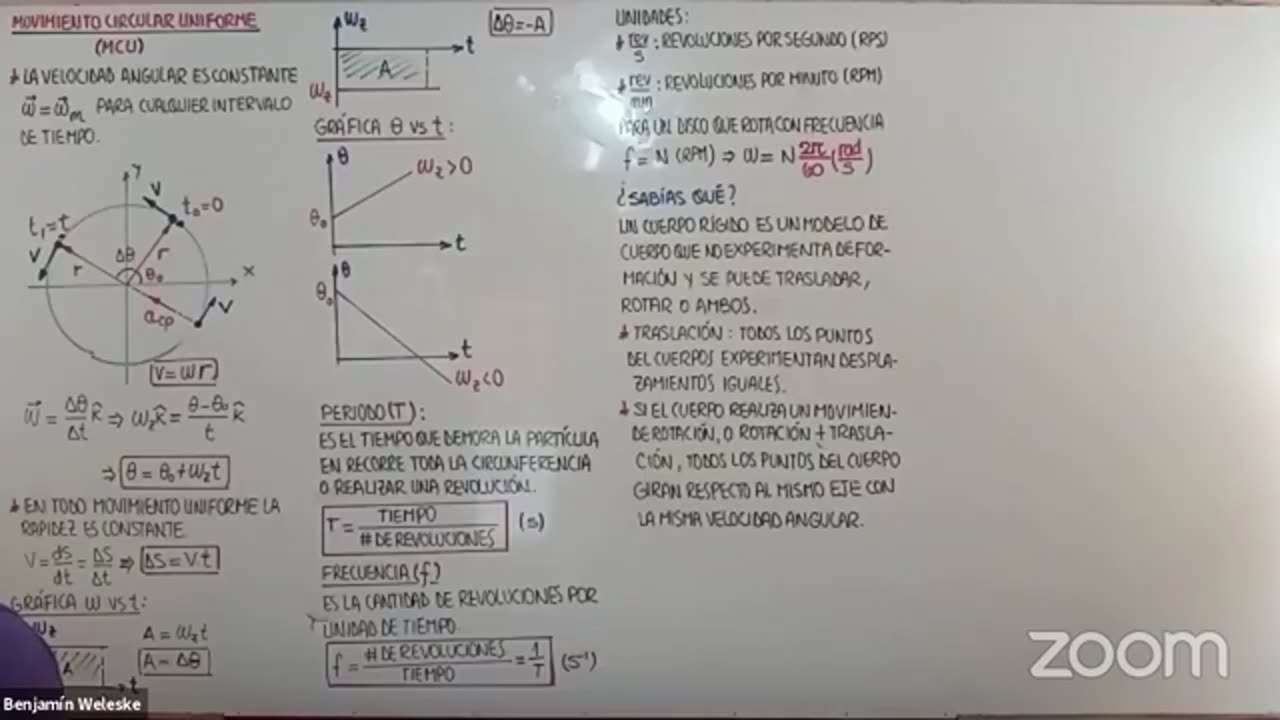 MOVIMIENTO CIRCULAR UNIFORME
(MCU)
* LA VELOCIDAD ANGULAR ES CONSTANTE
ω⃗ = ω⃗m PARA CUALQUIER INTERVALO
DE TIEMPO.
y
v
t₀=0
t₁=t
v
Δθ
r
r
θ₀
x
acp
v
v=ωr
ω⃗ = Δθ/Δt k̂ ⇒ ωz k̂ = θ-θ₀/t k̂
⇒ θ = θ₀+ωzt
* EN TODO MOVIMIENTO UNIFORME LA
RAPIDEZ ES CONSTANTE
V = ds/dt = ΔS/Δt ⇒ ΔS = Vt
GRÁFICA ω vs t:
ωz
A
t
A = ωzt
A = Δθ
ωz
Δθ=-A
t
A
ωz
GRÁFICA θ vs t:
θ
ωz>0
θ₀
t
θ
θ₀
t
ωz<0
PERIODO(T):
ES EL TIEMPO QUE DEMORA LA PARTÍCULA
EN RECORRE TODA LA CIRCUNFERENCIA
O REALIZAR UNA REVOLUCIÓN.
T = TIEMPO/# DE REVOLUCIONES (s)
FRECUENCIA(f)
ES LA CANTIDAD DE REVOLUCIONES POR
UNIDAD DE TIEMPO
f = # DE REVOLUCIONES/TIEMPO = 1/T (s⁻¹)
UNIDADES:
* rev/s : REVOLUCIONES POR SEGUNDO (RPS)
* rev/min : REVOLUCIONES POR MINUTO (RPM)
PARA UN DISCO QUE ROTA CON FRECUENCIA
f = N (RPM) ⇒ ω = N 2π/60 (rad/s)
¿SABÍAS QUÉ?
UN CUERPO RÍGIDO ES UN MODELO DE
CUERPO QUE NO EXPERIMENTA DEFOR-
MACIÓN Y SE PUEDE TRASLADAR,
ROTAR O AMBOS.
* TRASLACIÓN : TODOS LOS PUNTOS
DEL CUERPOS EXPERIMENTAN DESPLA-
ZAMIENTOS IGUALES.
* SI EL CUERPO REALIZA UN MOVIMIEN-
DE ROTACIÓN, O ROTACIÓN + TRASLA-
CIÓN, TODOS LOS PUNTOS DEL CUERPO
GIRAN RESPECTO AL MISMO EJE CON
LA MISMA VELOCIDAD ANGULAR.
zoom
Benjamín Weleske